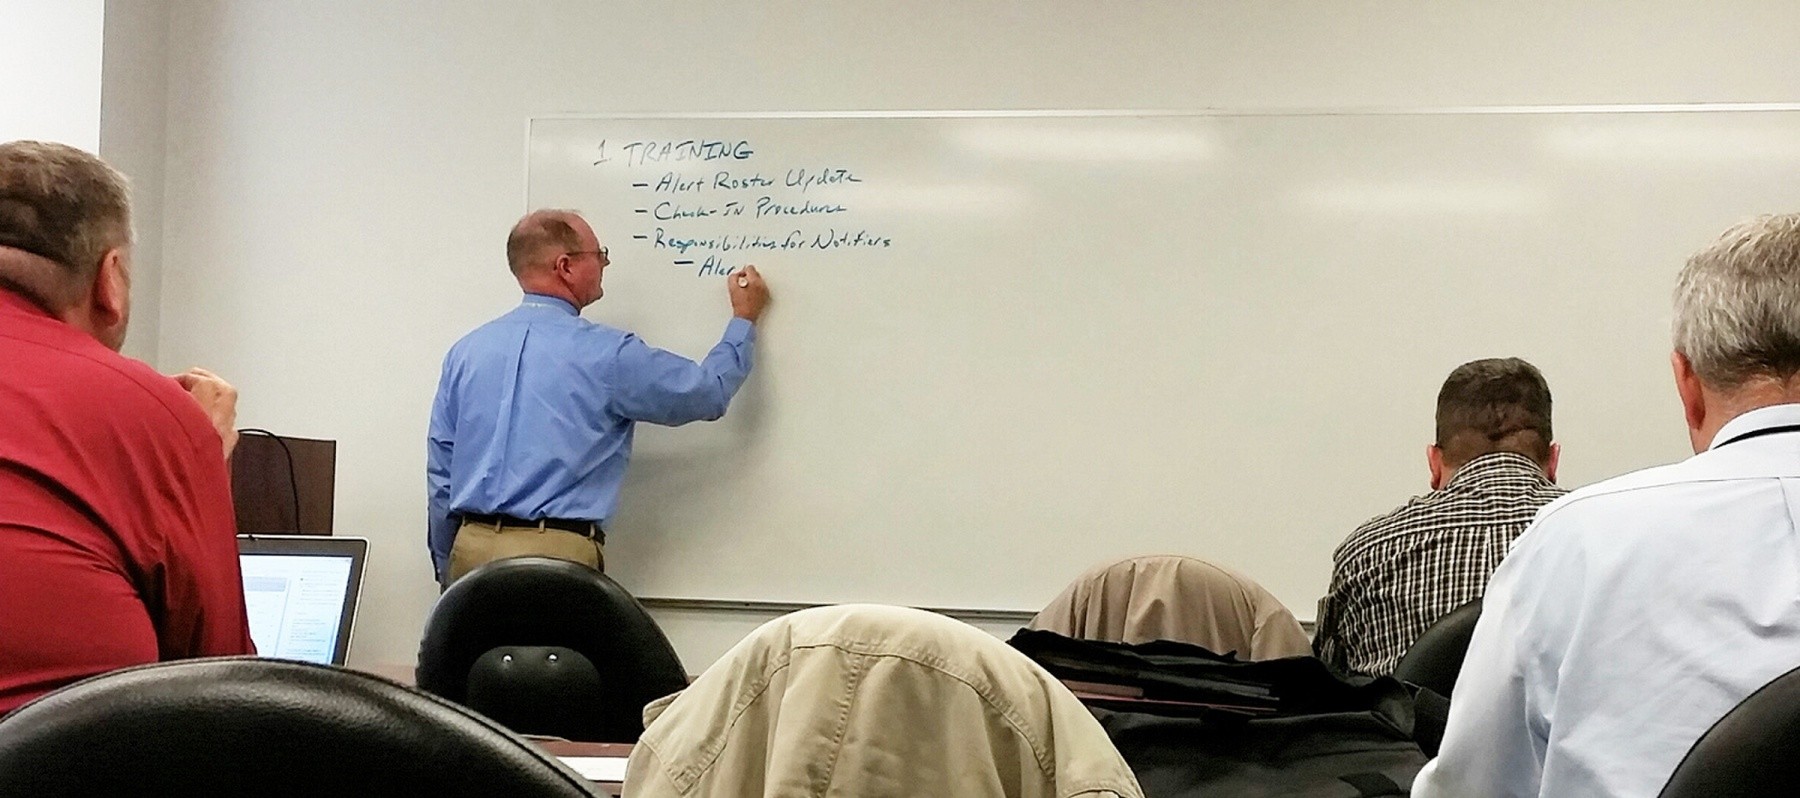 1. TRAINING
- Alert Roster Update
- Check-IN Procedures
- Responsibilities for Notifiers
- Aler